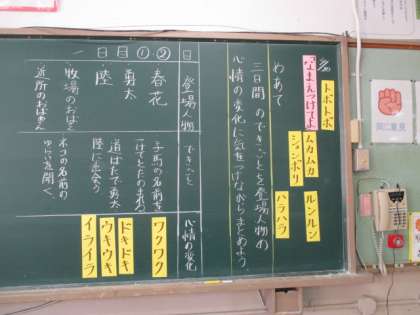 なまえつけてよ
トボトボ
ムカムカ
ションボリ
ルンルン
ハラハラ
めあて
三日間のできごとを登場人物の
心情の変化に気をつけながらまとめよう
日
登場人物
できごと
心情の変化
一日目
①
②
春花
勇太
陸
牧場のおばさん
近所のおばあさん
子馬の名前を
つけてとたのまれる
道ばたで勇太
陸に出会う
ネコの名前の
ゆらいを聞く。
ワクワク
ドキドキ
ウキウキ
イライラ